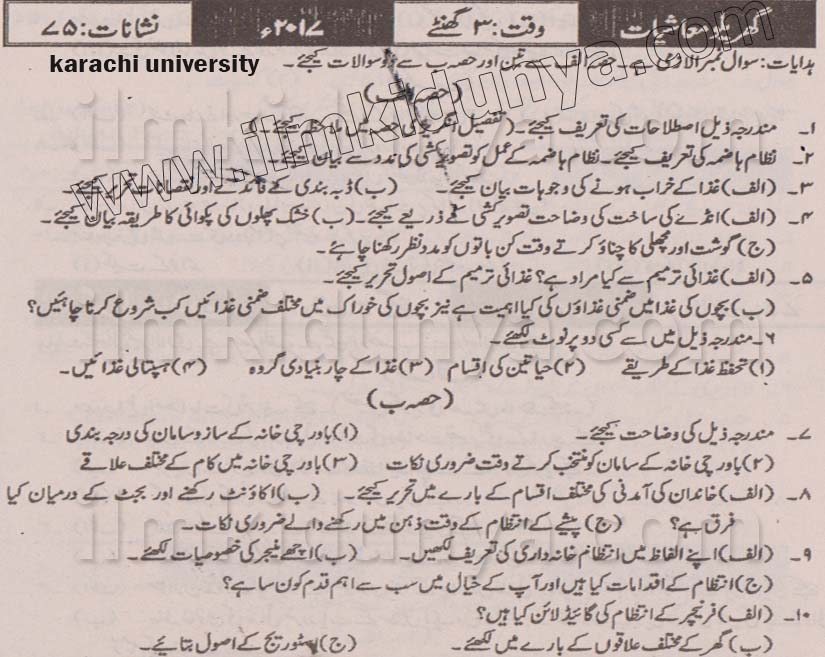 گھریلو معاشیات وقت: ۳ گھنٹے ۲۰۱۷ء نشانات: ۷۵
karachi university
ہدایات: سوال نمبر ۱ لازمی ہے۔ حصہ الف سے تین اور حصہ ب سے دو سوالات کیجئے۔
(حصہ)
۱۔ مندرجہ ذیل اصطلاحات کی تعریف کیجئے۔ (تفصیل انگریزی حصہ میں ملاحظہ کیجئے۔)
۲۔ نظام ہاضمہ کی تعریف کیجئے۔ نظام ہاضمہ کے عمل کو تصویر کشی کی مدد سے بیان کیجئے۔
۳۔ (الف) غذا کے خراب ہونے کی وجوہات بیان کیجئے۔ (ب) ڈبہ بندی کے فائدے اور نقصانات تحریر کیجئے۔
۴۔ (الف) انڈے کی ساخت کی وضاحت تصویر کشی کے ذریعے کیجئے۔ (ب) خشک پھلوں کی پکوائی کا طریقہ بیان کیجئے۔
(ج) گوشت اور مچھلی کا چناؤ کرتے وقت کن باتوں کو مد نظر رکھنا چاہے۔
۵۔ (الف) غذائی ترمیم سے کیا مراد ہے؟ غذائی ترمیم کے اصول تحریر کیجئے۔
(ب) بچوں کی غذا میں ضمنی غذاؤں کی کیا اہمیت ہے نیز بچوں کی خوراک میں مختلف ضمنی غذائیں کب شروع کرنا چاہئیں؟
۶۔ مندرجہ ذیل میں سے کسی دو پر نوٹ لکھئے۔
(۱) تحفظ غذا کے طریقے (۲) حیاتین کی اقسام (۳) غذا کے چار بنیادی گروہ (۴) ہسپتالی غذائیں۔
(حصہ ب)
۷۔ مندرجہ ذیل کی وضاحت کیجئے۔ (۱) باورچی خانہ کے ساز و سامان کی درجہ بندی
(۲) باورچی خانہ کے سامان کو منتخب کرتے وقت ضروری نکات (۳) باورچی خانہ میں کام کے مختلف علاقے
۸۔ (الف) خاندان کی آمدنی کی مختلف اقسام کے بارے میں تحریر کیجئے۔ (ب) اکاؤنٹ رکھنے اور بجٹ کے درمیان کیا
فرق ہے؟ (ج) پیشے کے انتظام کے وقت ذہن میں رکھنے والے ضروری نکات۔
۹۔ (الف) اپنے الفاظ میں انتظام خانہ داری کی تعریف لکھیں۔ (ب) اچھے منیجر کی خصوصیات لکھئے۔
(ج) انتظام کے اقدامات کیا ہیں اور آپ کے خیال میں سب سے اہم قدم کون سا ہے؟
۱۰۔ (الف) فرنیچر کے انتظام کی گائیڈ لائن کیا ہیں؟
(ب) گھر کے مختلف علاقوں کے بارے میں لکھئے۔ (ج) اسٹوریج کے اصول بتائیے۔
www.ilmkidunya.com
ilmkidunya.com
ilmkidunya.com
ilmkidunya.com